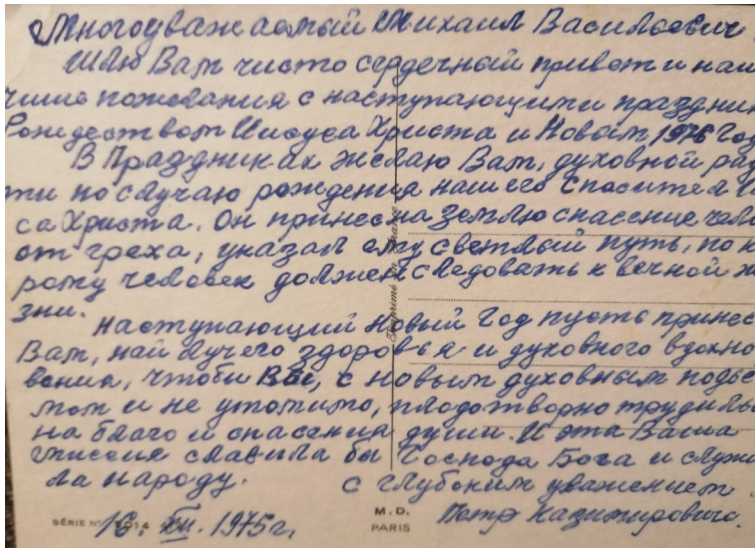 Многоуважаемый Михаил Васильевич
Шлю Вам чисто сердечный привет и наи
чшие пожелания с наступающими праздни
Рождеством Иисуса Христа и Новым 1976 Год
В Праздниках желаю Вам, духовной рад
ти по случаю рождения нашего Спасителя И
са Христа. Он принес на землю спасение чел
от греха, указал ему светлый путь, по к
рому человек должен следовать к вечной ж
зни.
Наступающий Новый Год пусть принес
Вам, най лучего здоровья и духовного вдохно
вения, чтобы Вы, с новым духовным подъе
мом и не утомимо, плодотворно трудил
на благо и спасения души. И эта Ваша
миссия славила бы Господа Бога и служи
ла народу. с глубоким уважением
Петр Казимирович.
16. XII. 1975г.
SÉRIE N° 5014
M. D.
PARIS
Imprimé en France